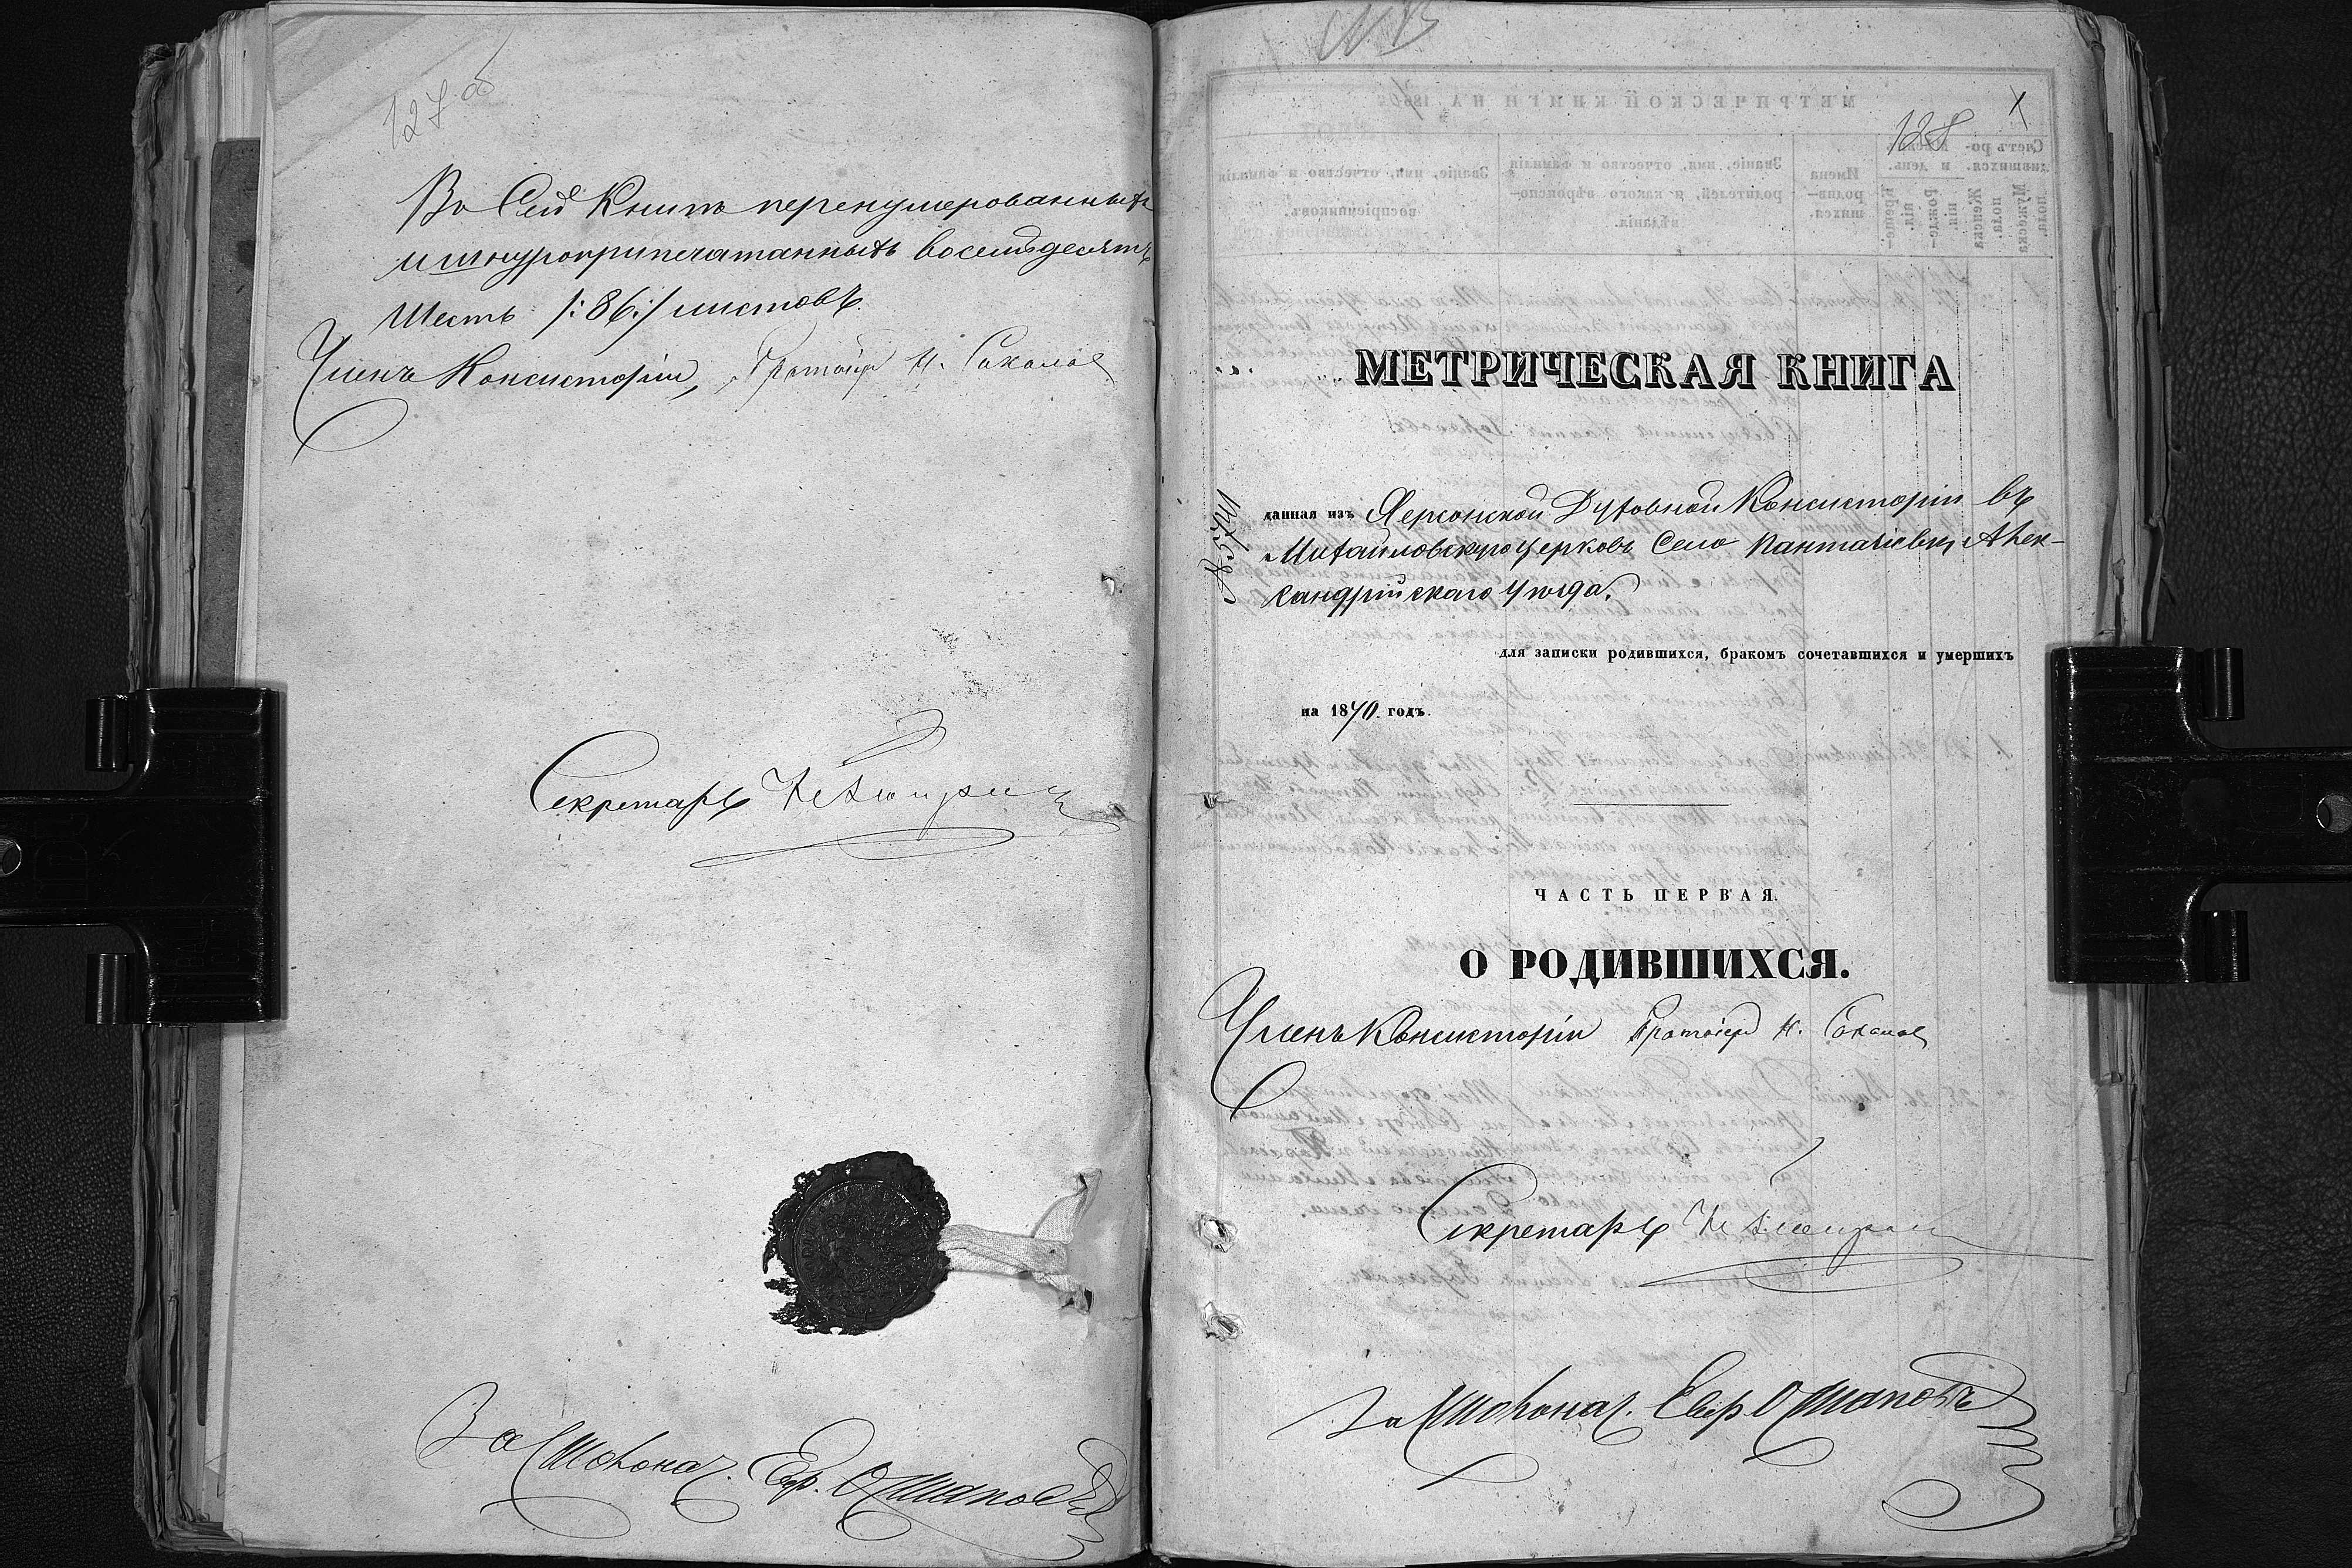 127 об
Въ Сей Книгѣ перенумерованныхъ
и шнуроприпечатанныхъ восемьдесятъ
Шесть /:86:/ листовъ.
Членъ Консисторіи, Протоіер Н. Соколов
Секретарь
За Столонач. Евр.
128
МЕТРИЧЕСКАЯ КНИГА
№ 5741
данная изъ Херсонской Духовной Консисторіи въ
Михайловскую церковь Села Пантаіевки, Алек-
сандрійскаго уѣзда.
для записки родившихся, бракомъ сочетавшихся и умершихъ
на 1870. годъ.
ЧАСТЬ ПЕРВАЯ.
О РОДИВШИХСЯ.
Членъ Консисторіи Протоіер Н. Соколов
Секретарь
За Столонач. Евр